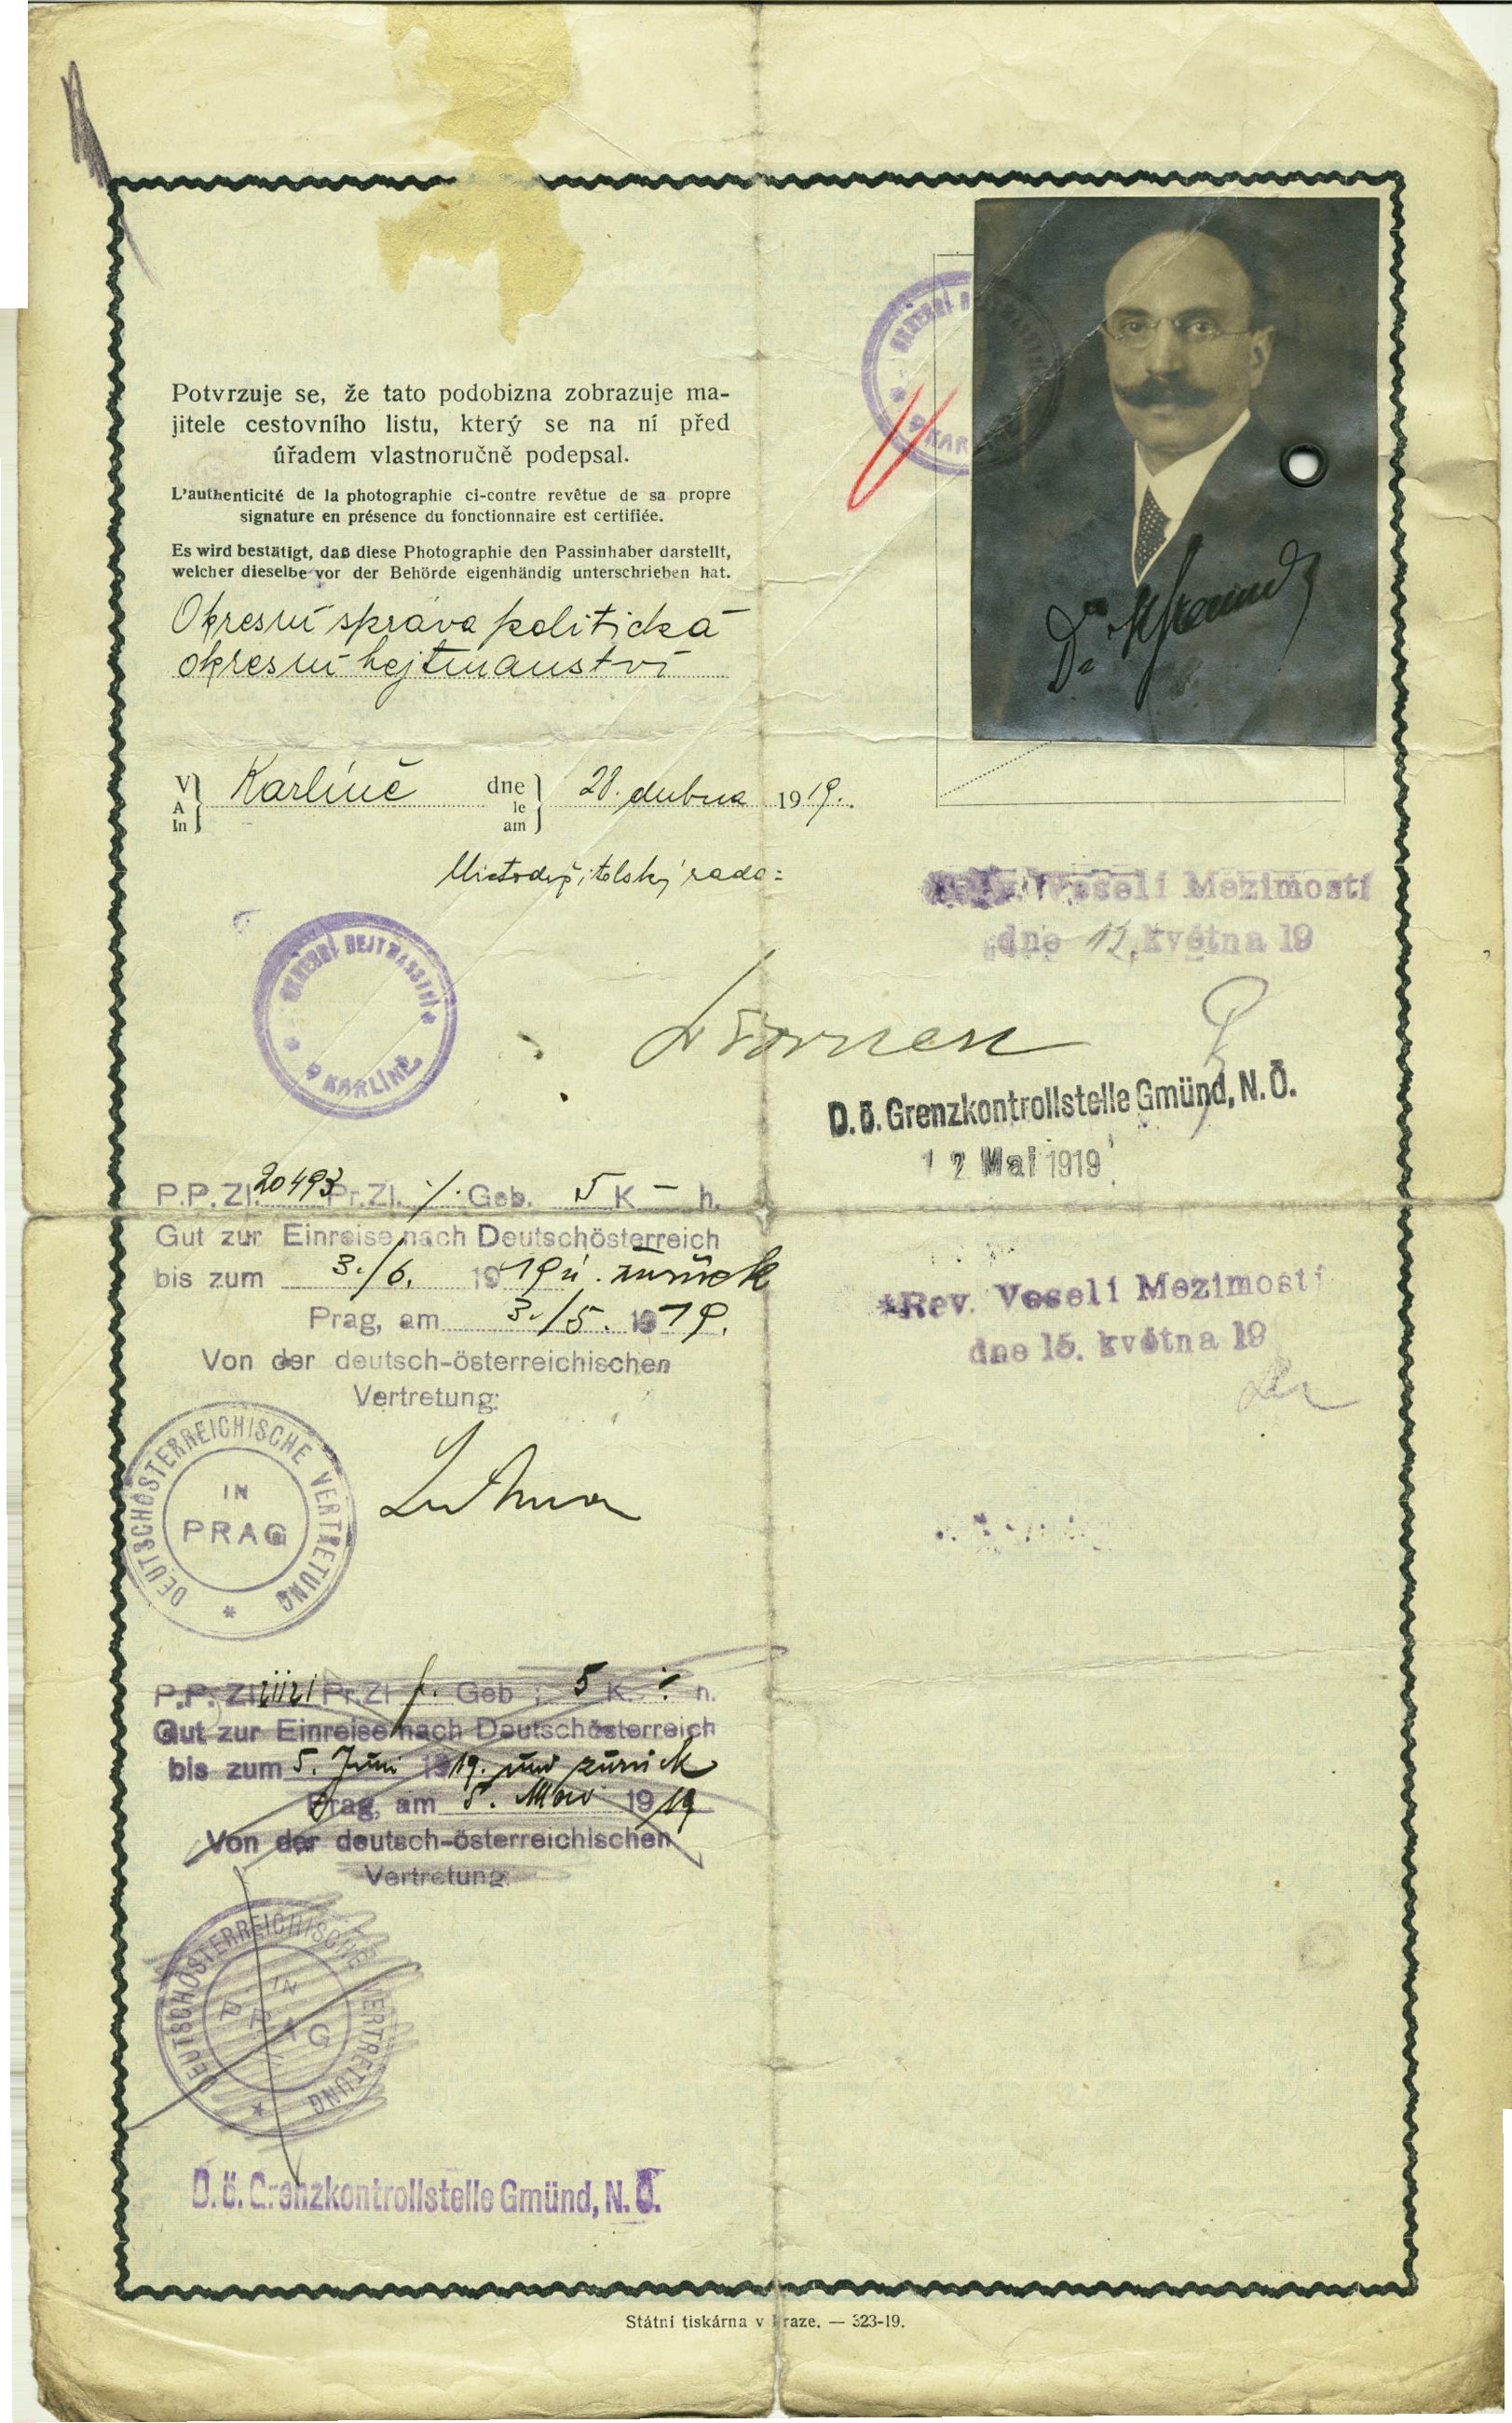 Potvrzuje se, že tato podobizna zobrazuje ma-
jitele cestovního listu, který se na ní před
úřadem vlastnoručně podepsal.
L'authenticité de la photographie ci-contre revêtue de sa propre
signature en présence du fonctionnaire est certifiée.
Es wird bestätigt, daß diese Photographie den Passinhaber darstellt,
welcher dieselbe vor der Behörde eigenhändig unterschrieben hat.
Okresní správa politická
okresní hejtmanství
V Karlíně dne 28. dubna 1919.
A le
In am
Místodržitelský rada:
OKRESNÍ HEJTMANSTVÍ
V KARLÍNĚ
Dr.
Veselí Mezimostí
dne 12. května 19
D.ö. Grenzkontrollstelle Gmünd, N.Ö.
12 Mai 1919
P.P. Zl. 20493 Pr. Zl. /. Geb. 5 K — h.
Gut zur Einreise nach Deutschösterreich
bis zum 3./6. 1919 u. zurück
Prag, am 3./5. 1919.
Von der deutsch-österreichischen
Vertretung:
DEUTSCHÖSTERREICHISCHE VERTRETUNG
IN
PRAG
Rev. Veselí Mezimostí
dne 15. května 19
P.P. Zl. Pr. Zl /. Geb : 5 K. h.
Gut zur Einreise nach Deutschösterreich
bis zum 5. Juni 1919. und zurück
Prag, am 5. Mai 1919
Von der deutsch-österreichischen
Vertretung:
DEUTSCHÖSTERREICHISCHE VERTRETUNG
IN
PRAG
D.ö. Grenzkontrollstelle Gmünd, N.Ö.
Státní tiskárna v Praze. — 323-19.